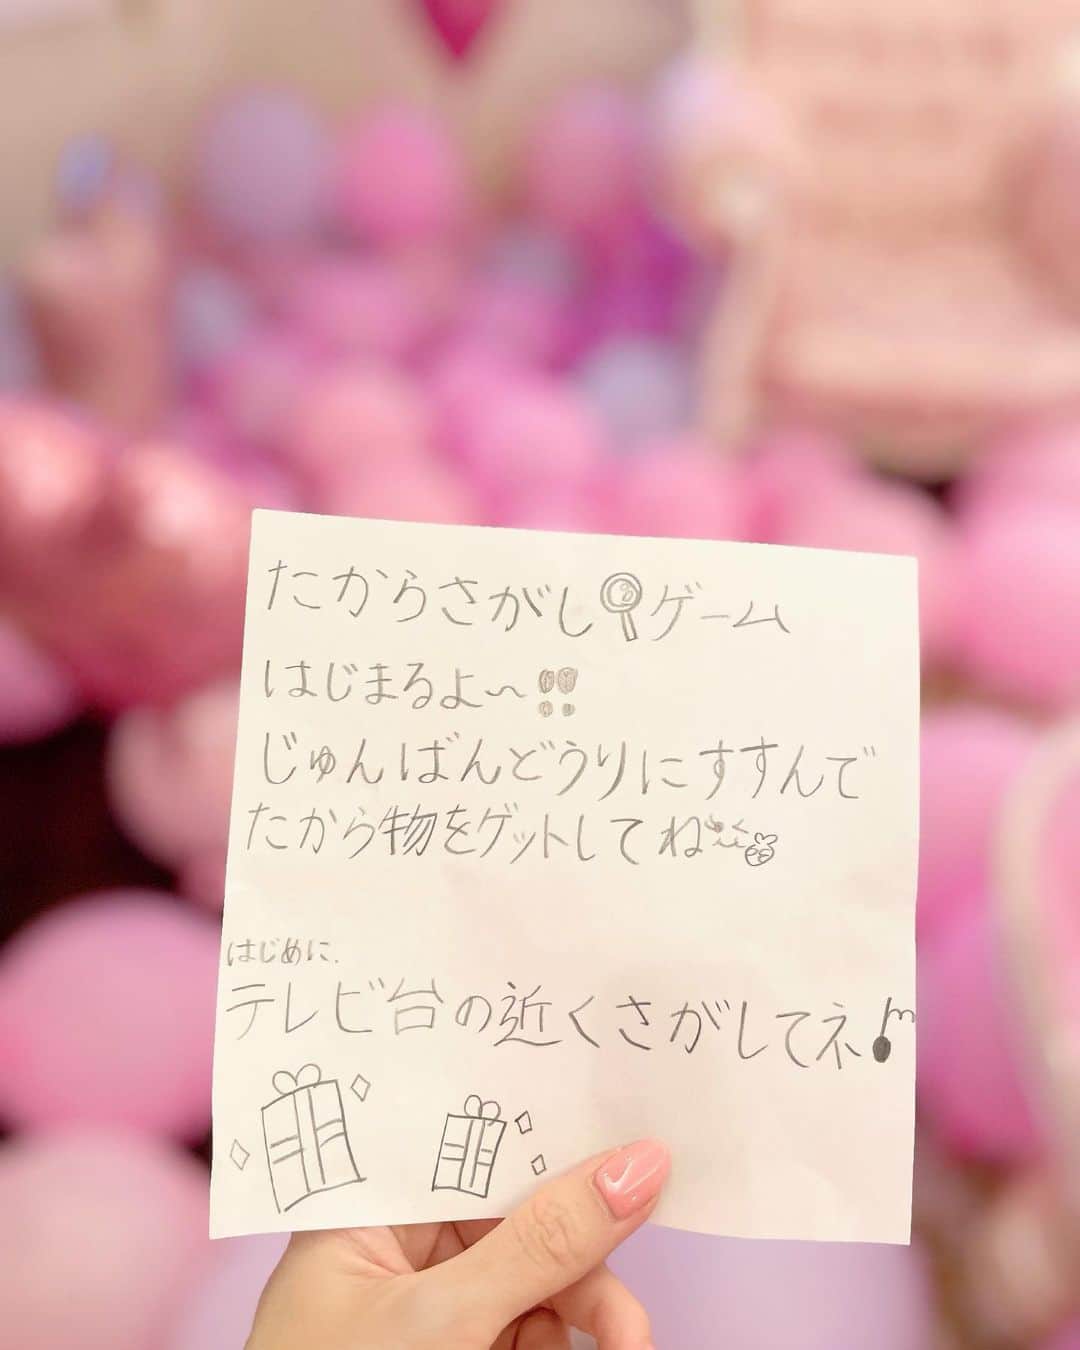 たからさがしゲーム
はじまるよ〜!!
じゅんばんどうりにすすんで
たから物をゲットしてね
はじめに.
テレビ台の近くさがしてネ♪